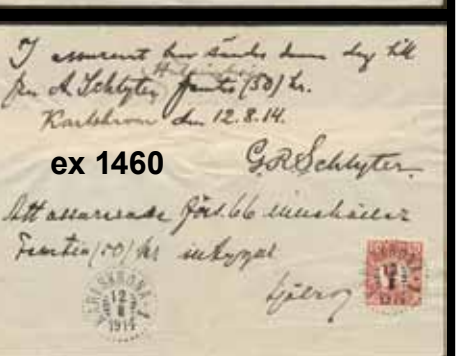 I assurent har sändts denna dag till
fru A. Schlyter Helsingborg femtio (50) kr.
Karlskrona den 12.8.14.
ex 1460
G.R Schlyter
Att assurerade förs. 66 innehåller
Femtio (50) kr intygar
KARLSKRONA 1
12
8
1914
KARLSKRONA 1
12
8
1914